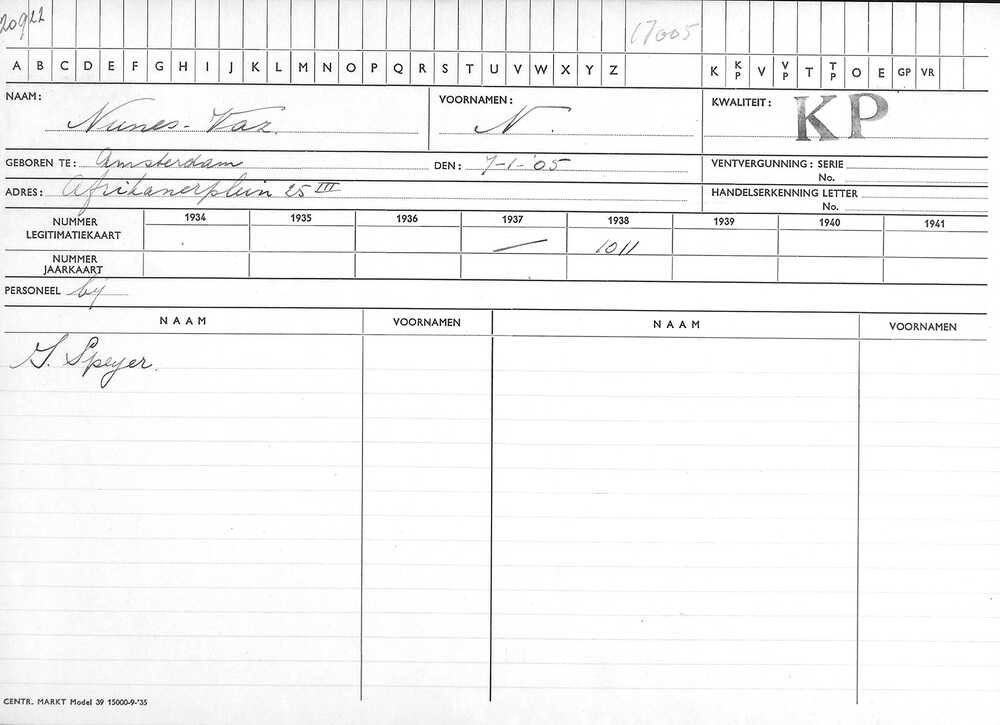 20922
17005
A B C D E F G H I J K L M N O P Q R S T U V W X Y Z K KP V VP T TP O E GP VR
NAAM: Nunes-Vaz. VOORNAMEN: N. KWALITEIT: KP
GEBOREN TE: Amsterdam DEN: 7-1-'05 VENTVERGUNNING: SERIE
No.
ADRES: Afrikanerplein 25 III HANDELSERKENNING LETTER
No.
NUMMER LEGITIMATIEKAART 1934 1935 1936 1937 1938 1939 1940 1941
— 1011
NUMMER JAARKAART
PERSONEEL bij
NAAM VOORNAMEN NAAM VOORNAMEN
S. Speyer.
CENTR. MARKT Model 39 15000-9-'35